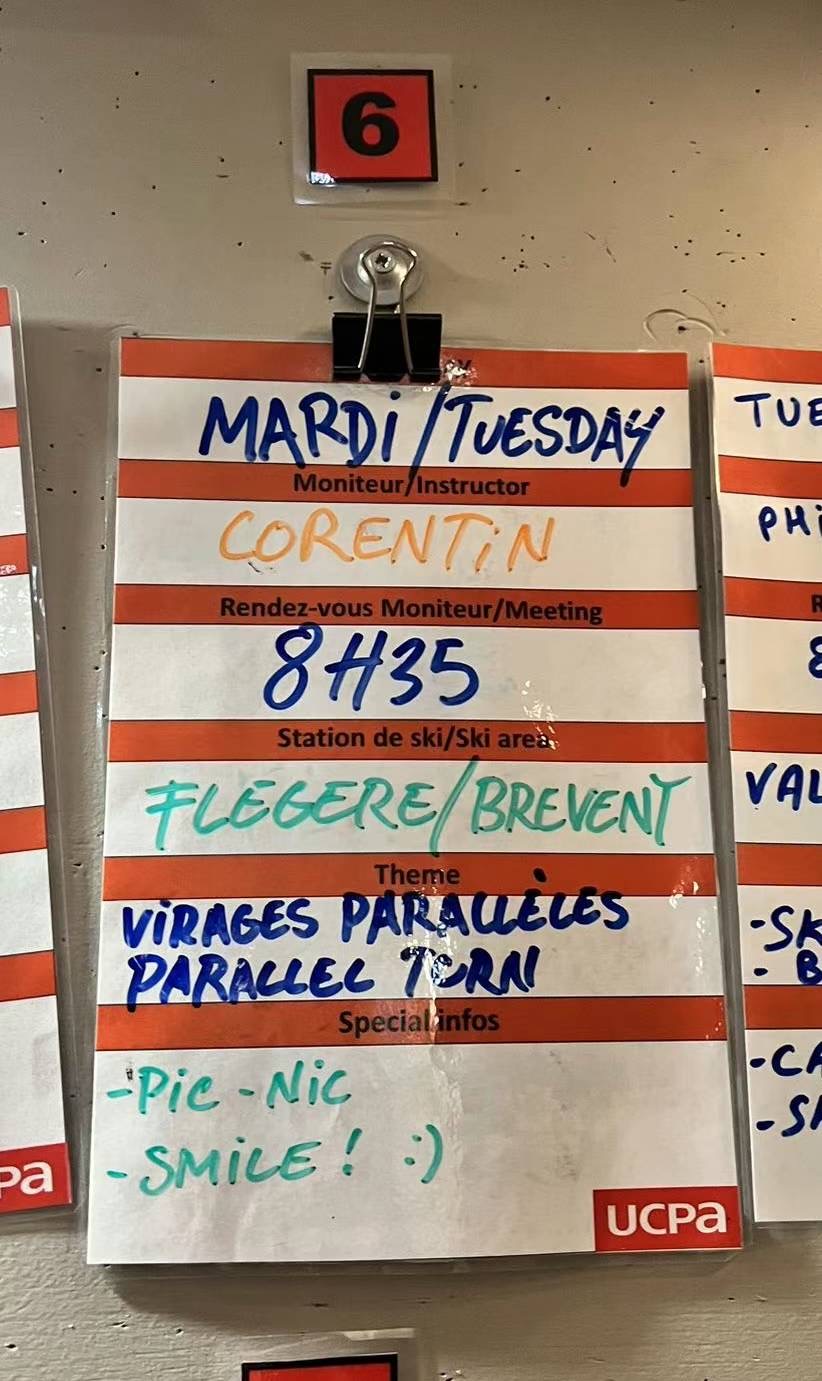 6
MARDi/TUESDAY
Moniteur/Instructor
CORENTiN
Rendez-vous Moniteur/Meeting
8H35
Station de ski/Ski area
FLEGERE/BREVENT
Theme
ViRAGES PARALLÈLES
PARALLEL TURN
Special infos
-PiC-NiC
-SMiLE! :)
UCPa
Pa
TUE
PHi
R
8
VAL
-SK
- B
-CA
-SA